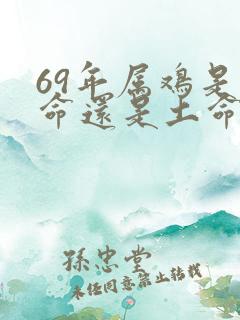 69年属鸡是
命還是土命
孫忠堂
未经同意禁止转载